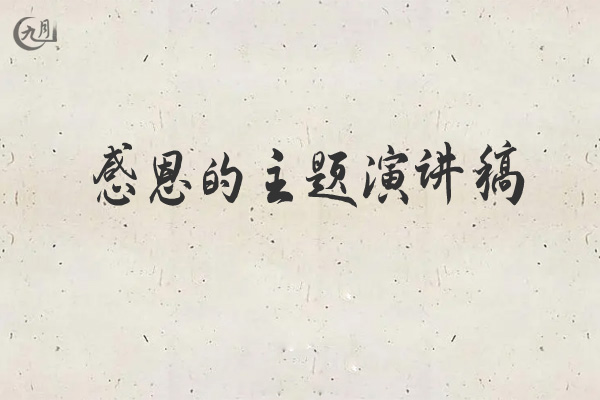 九月
感恩的主题演讲稿